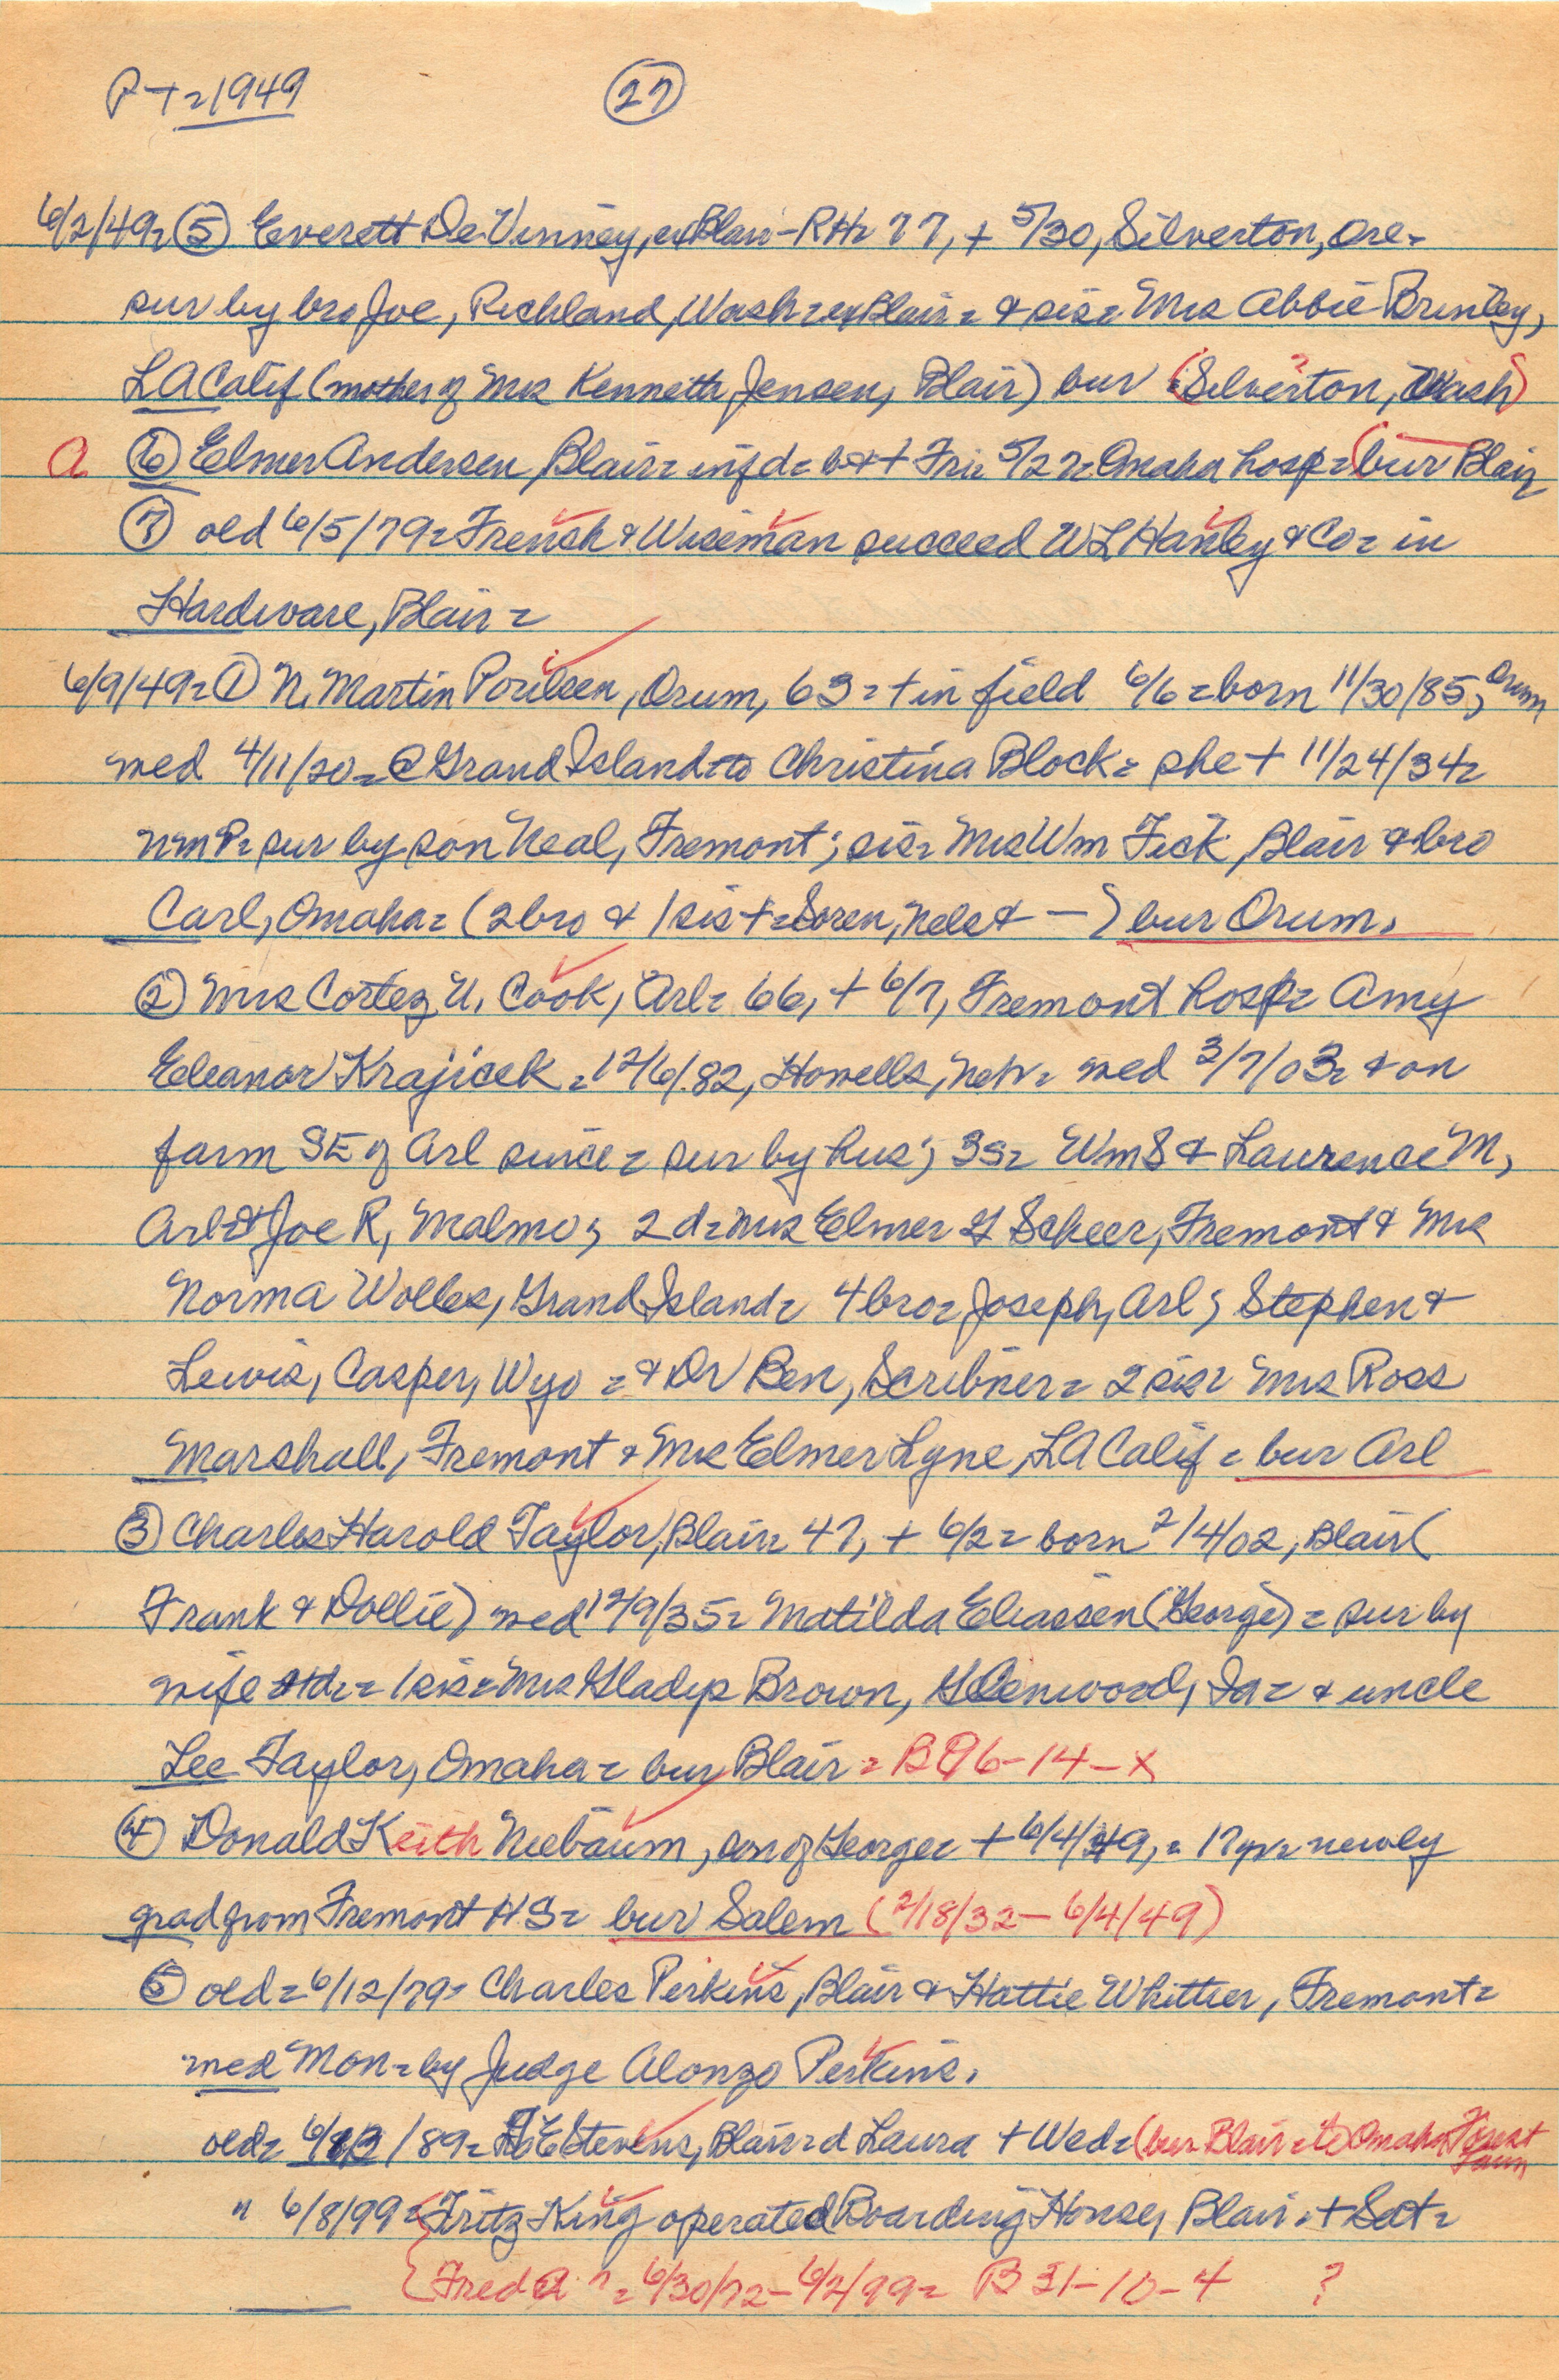 P-T=1949 (27)
6/2/49= (5) Everett DeVinney, ex Blair-RH= 77, + 5/30, Silverton, Ore-
sur by bro Joe, Richland, Wash= ex Blair= & sis= Mrs Abbie Brinley,
LA Calif (mother of Mrs Kenneth Jensen, Blair) bur (Silverton, Wash)
a (6) Elmer Andersen, Blair= inf d= b&+ Fri= 5/27= Omaha hosp= (bur Blair
(7) old 6/5/79= French & Wiseman succeed WL Hanley & Co= in
Hardware, Blair=
6/9/49= (1) N. Martin Poulsen, Orum, 63= + in field 6/6= born 11/30/85, Orum
med 4/11/20= @ Grand Island to Christina Block= she + 11/24/34=
nmP= sur by son Neal, Fremont; sis= Mrs Wm Fick, Blair & bro
Carl, Omaha= (2 bro & 1 sis += Soren, Nels & —) bur Orum.
(2) Mrs Cortez U. Cook, Arl= 66, + 6/7, Fremont hosp= Amy
Eleanor Krajicek= 12/6/82, Howells, Nebr= med 3/7/03= & on
farm SE of Arl since= sur by hus; 3S= Wm S & Laurence M,
Arl & Joe R, Malmo; 2 d= Mrs Elmer G Scheer, Fremont & Mrs
Norma Wolles, Grand Island= 4 bro= Joseph, Arl; Stephen &
Lewis, Casper, Wyo= & Dr Ben, Scribner= 2 sis= Mrs Ross
Marshall, Fremont & Mrs Elmer Lyne, LA Calif= bur Arl
(3) Charles Harold Taylor, Blair= 47, + 6/2= born 2/4/02, Blair (
Frank & Dollie) med 12/9/35= Matilda Eliassen (George)= sur by
wife = 1 sis= Mrs Gladys Brown, Glenwood, Ia= & uncle
Lee Taylor, Omaha= bur Blair= B 96-14-X
(4) Donald Keith Niebaum, son of George= + 6/4/49,= 17 yr= newly
grad from Fremont HS= bur Salem (2/18/32 — 6/4/49)
(5) old= 6/12/79= Charles Perkins, Blair & Hattie Whittier, Fremont=
med Mon= by Judge Alonzo Perkins.
old= 6/13/89= Stevens, Blair= d Laura + Wed= (bur Blair= to Omaha Forest Lawn
" 6/8/99= Fritz King operated Boarding House, Blair. + Sat=
{Fred "= 6/30/72 — 6/2/99= B 31-10-4 ?